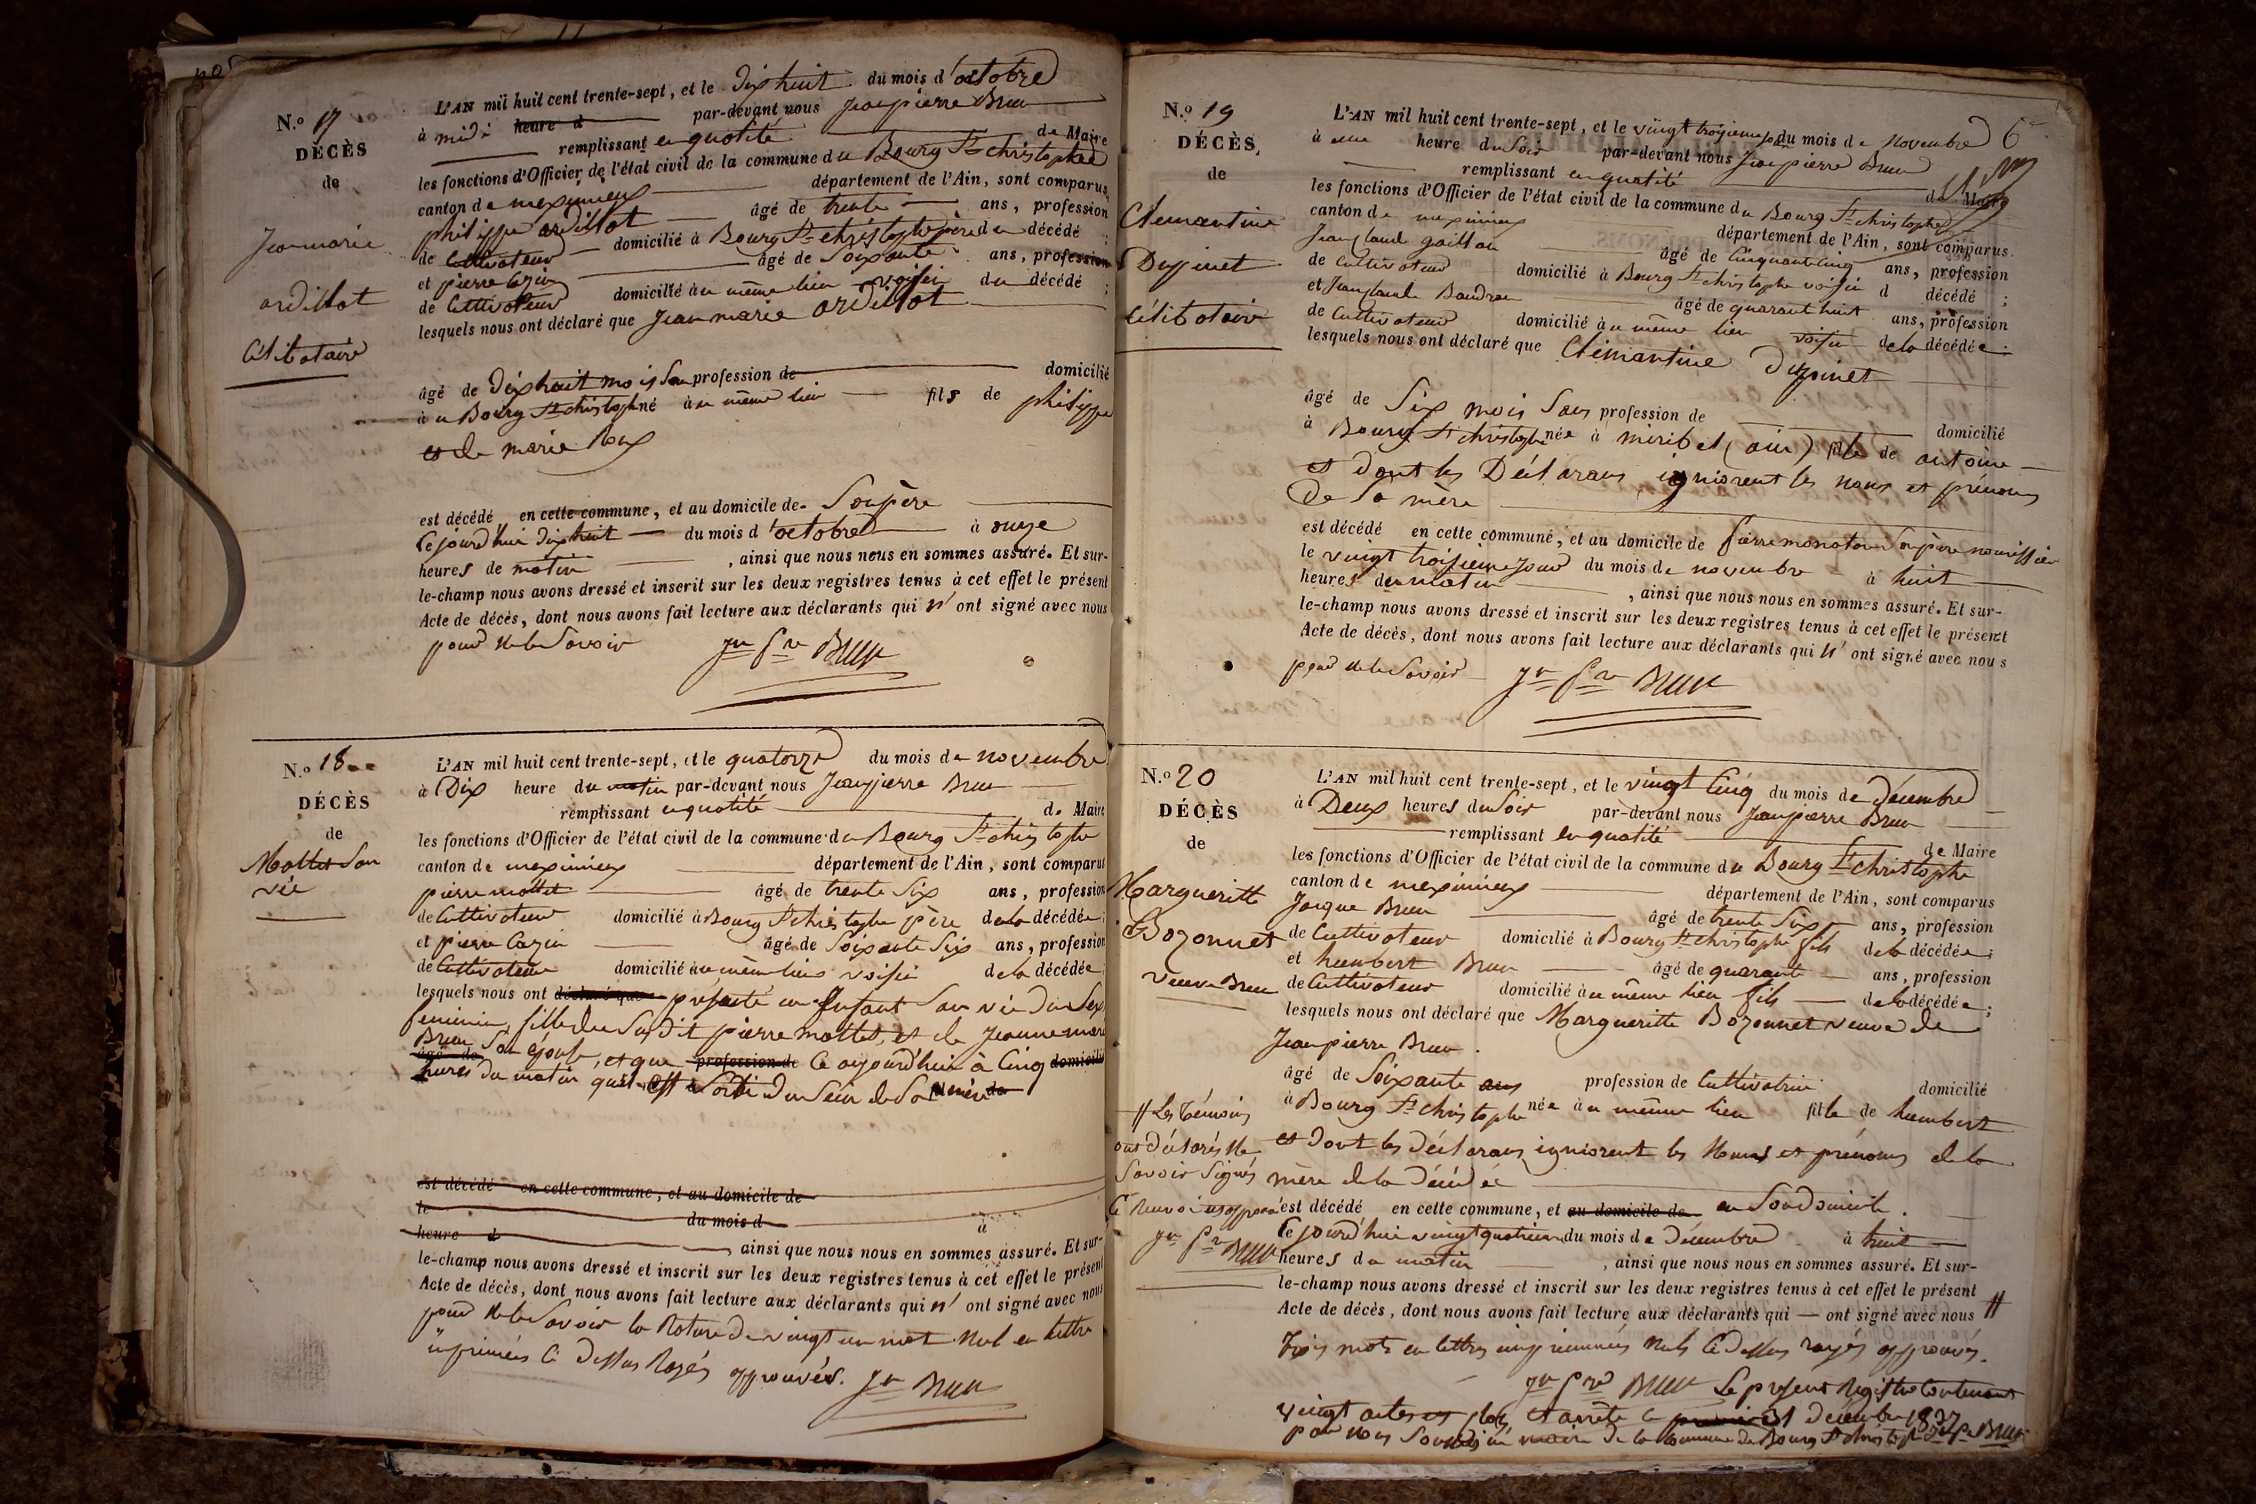 N.o 17
DÉCÈS
de
Jean marie
ardillot
Célibataire
L'AN mil huit cent trente-sept, et le dix huit du mois d'octobre
à midi heure d par-devant nous Jean pierre Brun
remplissant en qualité de Maire
les fonctions d'Officier de l'état civil de la commune du Bourg St christophe
canton de meximieux département de l'Ain, sont comparus
philippe ardillot âgé de trente ans, profession
de Cultivateur domicilié à Bourg St christophe père du décédé ;
et pierre Cazin âgé de Soixante ans, profession
de Cultivateur domicilié au même lieu voisin du décédé ;
lesquels nous ont déclaré que Jean marie ardillot
âgé de dix huit mois San profession de domicilié
à u Bourg St christophe né à u même lieu fils de philippe
et de marie Roux
est décédé en cette commune, et au domicile de Son père
Ce jourd'hui dix huit du mois d'octobre à onze
heures de matin , ainsi que nous nous en sommes assuré. Et sur-
le-champ nous avons dressé et inscrit sur les deux registres tenus à cet effet le présent
Acte de décès, dont nous avons fait lecture aux déclarants qui n' ont signé avec nous
pour ne le Savoir Jn Pre Brun
N.o 18
DÉCÈS
de
Mottet San
vie
L'AN mil huit cent trente-sept, et le quatorze du mois de novembre
à Dix heure du matin par-devant nous Jean pierre Brun
remplissant en qualité de Maire
les fonctions d'Officier de l'état civil de la commune du Bourg St christophe
canton de meximieux département de l'Ain, sont comparus
pierre mottet âgé de trente Six ans, profession
de Cultivateur domicilié à Bourg St christophe père de la décédée ;
et pierre Cazin âgé de Soixante Six ans, profession
de Cultivateur domicilié au même lieu voisin de la décédée ;
lesquels nous ont déclaré que présenté un Enfant San vie du Sex
feminin, fille du Susdit pierre mottet, et de Jeanne marie
Brun Son épouse, et que profession de Ce aujourd'hui à Cinq domicilié
âgé de
heures du matin qu'il est Sorti du Sein de Sa mère
est décédé en cette commune, et au domicile de
le du mois d à
heure d ainsi que nous nous en sommes assuré. Et sur-
le-champ nous avons dressé et inscrit sur les deux registres tenus à cet effet le présent
Acte de décès, dont nous avons fait lecture aux déclarants qui n' ont signé avec nous
pour ne le Savoir la Rature de vingt un mot Nul en lettre
imprimées Ci Dessus Rayés approuvés. Jn Brun
N.o 19
DÉCÈS,
de
Clemantine
Dupinet
Célibataire
L'AN mil huit cent trente-sept, et le vingt troisieme jour du mois de Novembre 6
à une heure du Soir par-devant nous Jean pierre Brun
remplissant en qualité de Maire
les fonctions d'Officier de l'état civil de la commune du Bourg St christophe
canton de meximieux département de l'Ain, sont comparus
Jean Claude âgé de Cinquante Cinq ans, profession
de Cultivateur domicilié à Bourg St christophe voisin d décédé ;
et Jean Claude Baudran âgé de quarant huit ans, profession
de Cultivateur domicilié à u même lieu voisin de la décédée ;
lesquels nous ont déclaré que Clémantine Dupinet
âgé de Six mois Sans profession de domicilié
à Bourg St christophe née à miribel (ain) fille de antoine
et dont les Déclarans igniorent les noms et prénoms
de Sa mère
est décédé en cette commune, et au domicile de pierre monatou Son père nourissier
le vingt troisieme Jour du mois de novembre à huit
heures du matin , ainsi que nous nous en sommes assuré. Et sur-
le-champ nous avons dressé et inscrit sur les deux registres tenus à cet effet le présent
Acte de décès, dont nous avons fait lecture aux déclarants qui n' ont signé avec nous
pour ne le Savoir Jn Pre Brun
N.o 20
DÉCÈS
de
Margueritte
Bozonnet
veuve Brun
L'AN mil huit cent trente-sept, et le vingt Cinq du mois de décembre
à Deux heures du Soir par-devant nous Jean pierre Brun
remplissant en qualité de Maire
les fonctions d'Officier de l'état civil de la commune du Bourg St christophe
canton de meximieux département de l'Ain, sont comparus
Jacque Brun âgé de trente Six ans, profession
de Cultivateur domicilié à Bourg St christophe fils de la décédée ;
et humbert Brun âgé de quarante ans, profession
de Cultivateur domicilié à u même lieu fils de la décédée ;
lesquels nous ont déclaré que Margueritte Bozonnet veuve de
Jean pierre Brun.
âgé de Soixante ans profession de Cultivatrice domicilié
à Bourg St christophe née à u même lieu fille de humbert
et dont les déclarans igniorent les Noms et prénoms de la
mère de la Décédée
est décédé en cette commune, et au domicile de en Son domicile.
Ce jourd'hui vingt quatrieme du mois de décembre à huit
heures du matin , ainsi que nous nous en sommes assuré. Et sur-
le-champ nous avons dressé et inscrit sur les deux registres tenus à cet effet le présent
Acte de décès, dont nous avons fait lecture aux déclarants qui — ont signé avec nous #
# Les témoins
ont déclarés Ne
Savoir Signés
Ce Renvoi approuvé
Jn Pre Brun
trois mots en lettres imprimées Nuls Ci dessus rayés approuvés.
Jn Pre Brun Le présent Registre Contenant
vingt actes clos et arrêté le 31 décembre 1837
par nous Soussigné maire de la Commune de Bourg St christophe Jn Pre Brun